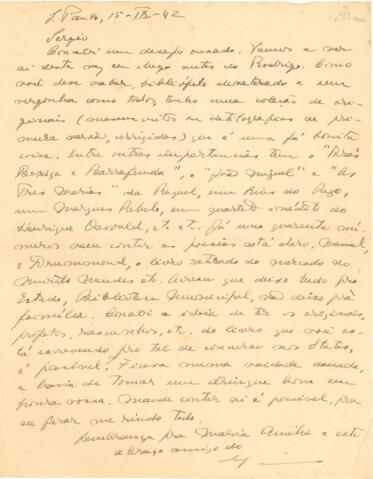 S. Paulo, 15-IX-42
Sergio
Concebi um desejo ousado. Vamos a ver
si desta vez eu chego antes do Rodrigo. Como
você deve saber, bibliófilo inveterado e sem
vergonha como todos, tenho uma coleção de ori-
ginais (manuscritos ou datilografias de pri-
meira versão, corrigidas) que é uma já bonita
coisa. Entre outras importancias tem o "Brás
Bexiga e Barrafunda", o "João Miguel" e "As
Tres Marias" da Raquel, um Lins do Rego,
um Marques Rebelo, um quarteto inédito do
Henrique Oswald, etc. etc. Já nos quarenta nú-
meros sem contar as poesias está claro, Manuel,
o Drummond, o livro retirado do mercado do
Murilo Mendes etc. Acresce que deixo tudo pro
Estado, Biblioteca Municipal, não deixo prá
familia. Concebi a ideia de ter os originais,
projetos, rascunhos, etc. do livro que você es-
tá escrevendo pro tal de concurso nos States,
é possivel? Ficava numa vaidade danada,
e havia de tomar um drinque bom em
honra nossa. Mande contar si é possivel, pra
eu ficar me rindo todo.
Lembrança pra Maria Amélia e este
abraço amigo do